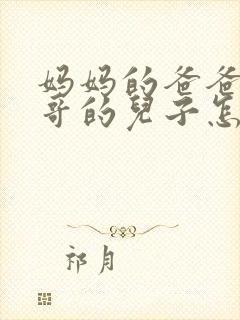 妈妈的爸爸
哥的兒子怎
祁月